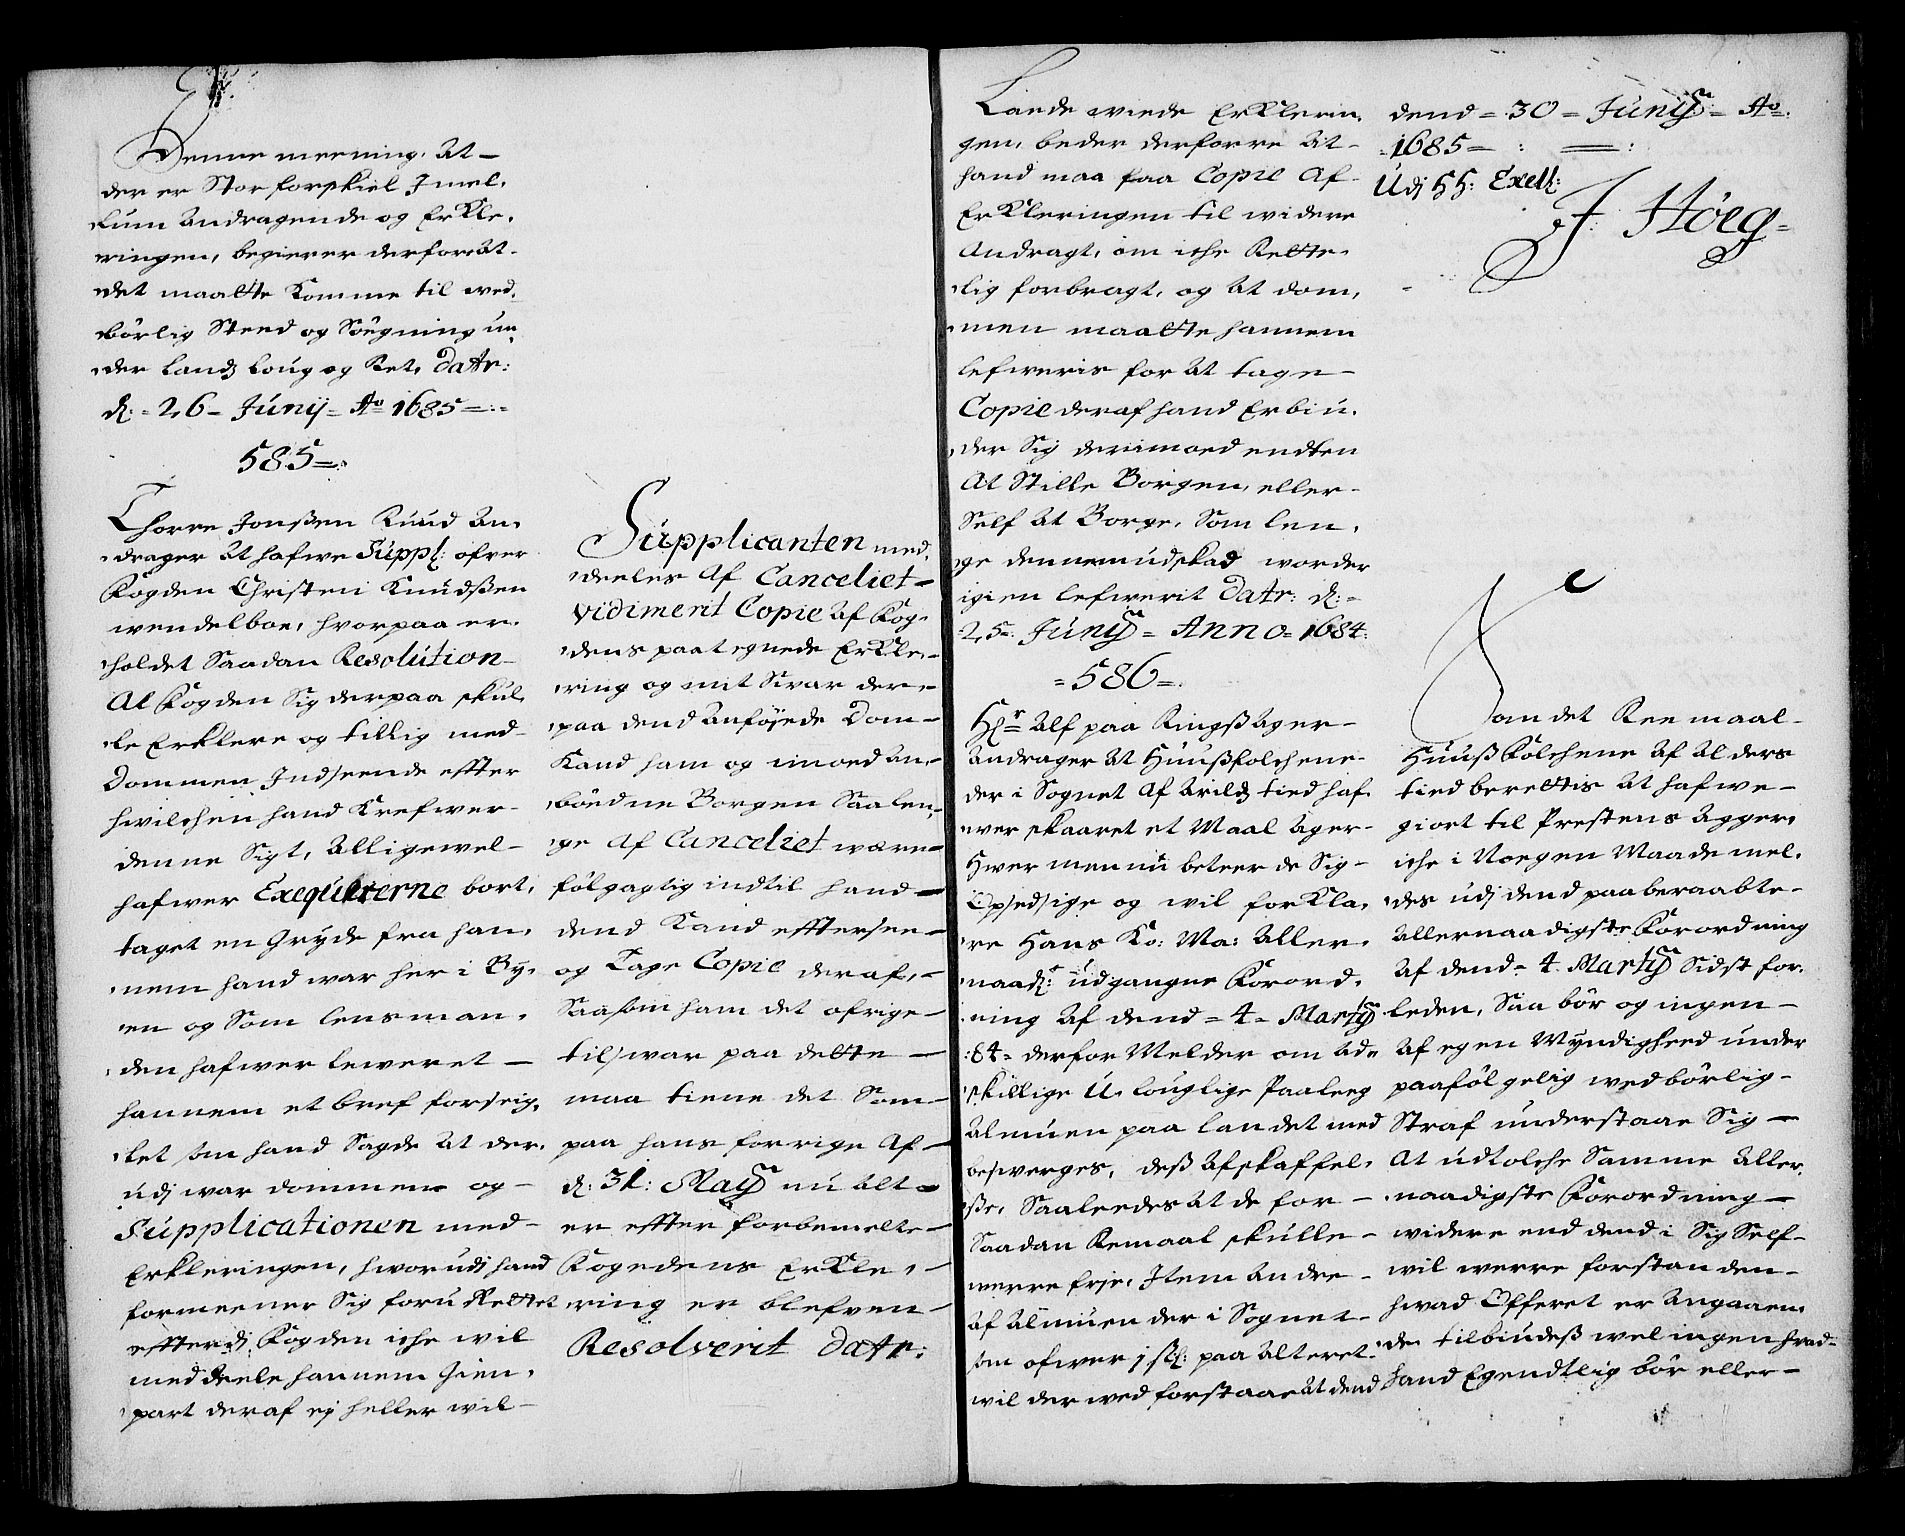 Denne meening, at
der er Stor forskiel Jmel,
lum andragende og Erkle,
ringen, begierer derfore at
det maatte Komme til wed,
börlig Steed og Sögning un,
der Landz Loug og Ret, Datr:
d: 26 Junij Ao 1685
585
Thorre Jonßen Ruud an,
drager at hafwe Suppl: ofver
Fogden Christen Knudßen
wendelboe, hvorpaa er
holdet Saadan Resolution
At Fogden Sig derpaa skul,
le Erklere og tillig med
Dommen Indseende effter
hwilchen hand Krefwer
denne Sigt, Alligewel
hafwer Exequterne bort,
taget en Gryde fra han,
nem hand war her i By,
en og Som lensman,
den hafwer leweret
hannem et bref forseig,
let som hand Sagde at der,
udj war dommen og
Supplicationen med
Erkleringen, hworudj hand
formeener Sig foruRettet
effterdj Fogden iche wil
meddeele hannem Gien,
part deraf ej heller wil
Supplicanten med,
deeles af Canceliet
Vidimerit Copie af Fog,
dens paategnede Erkle,
ring og mit Swar der
paa dend anföjede Dom
Kand ham og imoed an,
bödne Borgen Saalen,
ge af Canceliet wære
fölgagtig indtil hand
dend Kand efftersee
og Tage Copie deraf,
Saasom ham det öfrige
tilswar paa dette
maa tiene det Som
paa hans forrige Af
d: 31: Maij nu alt
er effter forbemelte
Fogedens Erkle,
ring er blefven
Resolverit Datr:
Laede wiede Erklerin,
gen, beder derforre at
hand maa faa Copie af
Erkleringen til widere
Andragt, om iche Rette,
lig forbragt, og at dom,
men maatte hannem
lefweris for at tage
Copie deraf hand Erbiu,
der Sig derimoed endten
At Stille Borgen, eller
Self at Borge, Som len,
ge denne udskad worder
igien lefwerit Datr: d:
25 Junij Anno 1684:
586
Hr Alf paa Ringßager
Andrager at Huußfolchene
der i Sognet af Arildz tied haf
wer skaaret et Maal ager
Hwer men nu beteer de Sig
Opsedsige og wil forkla,
re Hans Ko: Ma: Aller,
naadt: udgangne Forord,
ning af dend 4 Martij
84 derfor Melder om ad,
skillige U, louglige Paaleeg
Almuen paa landet med
besverges, deß afskaffel,
ße, Saaleedes at de for
Saadan Remaal skulle
werre frje, Item andre
af Almuen der i Sognet
som ofwer 1 sk: paa alteret
wil der wed forstaae at dend
dend 30 Junij Ao
1685
Udj HH: Exell:
J. Höeg
Saa det Ree maal
Huußfolchene af alders
tied berettis at hafwe
giort til Prestens Agger,
iche i Noegen Maade mel,
des udj dend paaberaabte
Allernaadigste Forordning
af dend 4 Martij Sidst for,
leden, Saa bör og ingen
af egen Myndigheed under
paafölgelig wedbörlig
Straf understaae Sig
At udtolche Samme Aller,
naadigste Forordning
widere end dend i Sig Self
wil werre forstanden
hwad Offeret er angaaen,
de tilbiudeß wel ingen hvad
hand Egendtlig bör eller